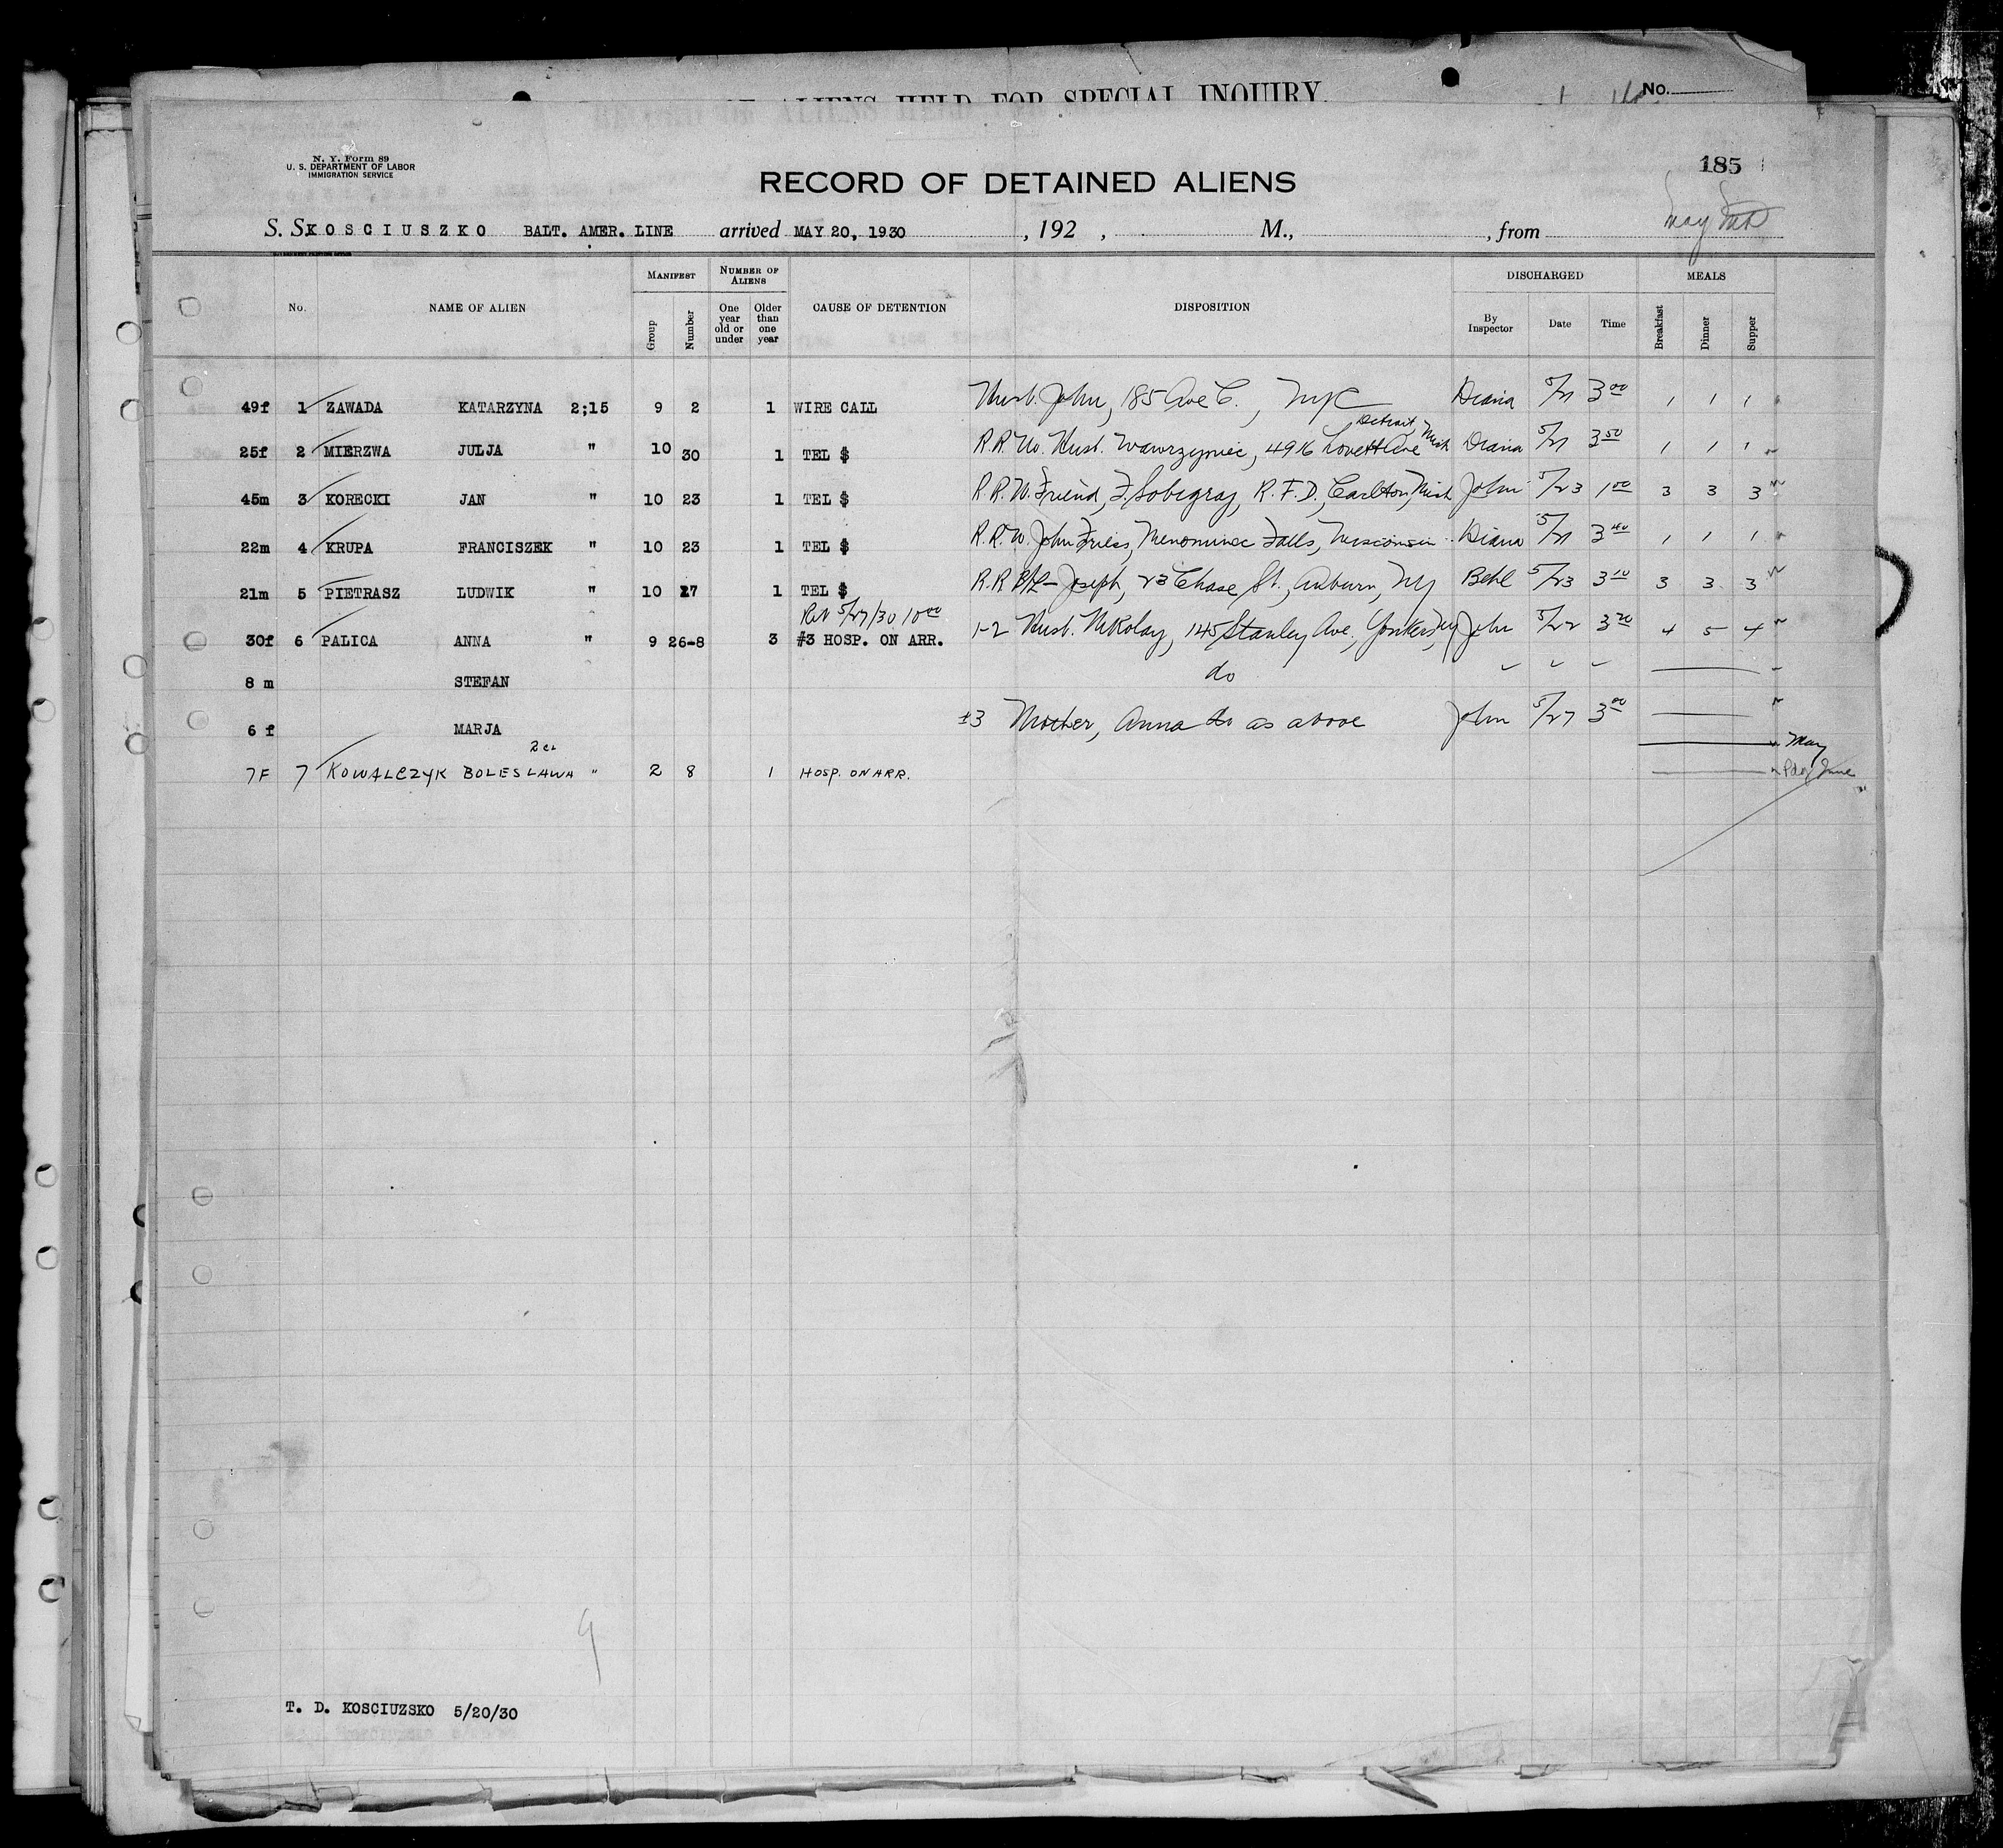 ALIENS HELD FOR SPECIAL INQUIRY.
No.
N. Y. Form 89
U. S. DEPARTMENT OF LABOR
IMMIGRATION SERVICE
185
RECORD OF DETAINED ALIENS
S. S. KOSCIUSZKO BALT. AMER. LINE arrived MAY 20, 1930 , 192 , M., , from
MANIFEST NUMBER OF ALIENS DISCHARGED MEALS
No. NAME OF ALIEN Group Number One year old or under Older than one year CAUSE OF DETENTION DISPOSITION By Inspector Date Time Breakfast Dinner Supper
49f 1 ZAWADA KATARZYNA 2;15 9 2 1 WIRE CALL Husb. John, 185 Ave C., NYC Diana 5/21 3 00 1 1 1
Detroit, Mich
25f 2 MIERZWA JULJA " 10 30 1 TEL $ R.R.W. Husb. Wawrzyniec, 4916 Lovett Ave Diana 5/21 3 50 1 1 1
45m 3 KORECKI JAN " 10 23 1 TEL $ R.R.W. Friend, F. Sobegraj, R.F.D., Carlton, Mich John 5/23 1 00 3 3 3
22m 4 KRUPA FRANCISZEK " 10 23 1 TEL $ R.R.W. John Friess, Menominee Falls, Wisconsin Diana 5/21 3 40 1 1 1
21m 5 PIETRASZ LUDWIK " 10 27 1 TEL $ R.R. Joseph, 23 Chase St., Auburn, NY Behl 5/23 3 10 3 3 3
5/27/30 10 00
30f 6 PALICA ANNA " 9 26-8 3 #3 HOSP. ON ARR. 1-2 Husb. Mikolay, 145 Stanley Ave., Yonkers, NY John 5/22 3 20 4 5 4
8 m STEFAN do
6 f MARJA #3 Mother, Anna as above John 5/27 3 00
May
7F 7 KOWALCZYK BOLESLAWA " 2 8 1 HOSP. ON ARR. June
9
T. D. KOSCIUZSKO 5/20/30